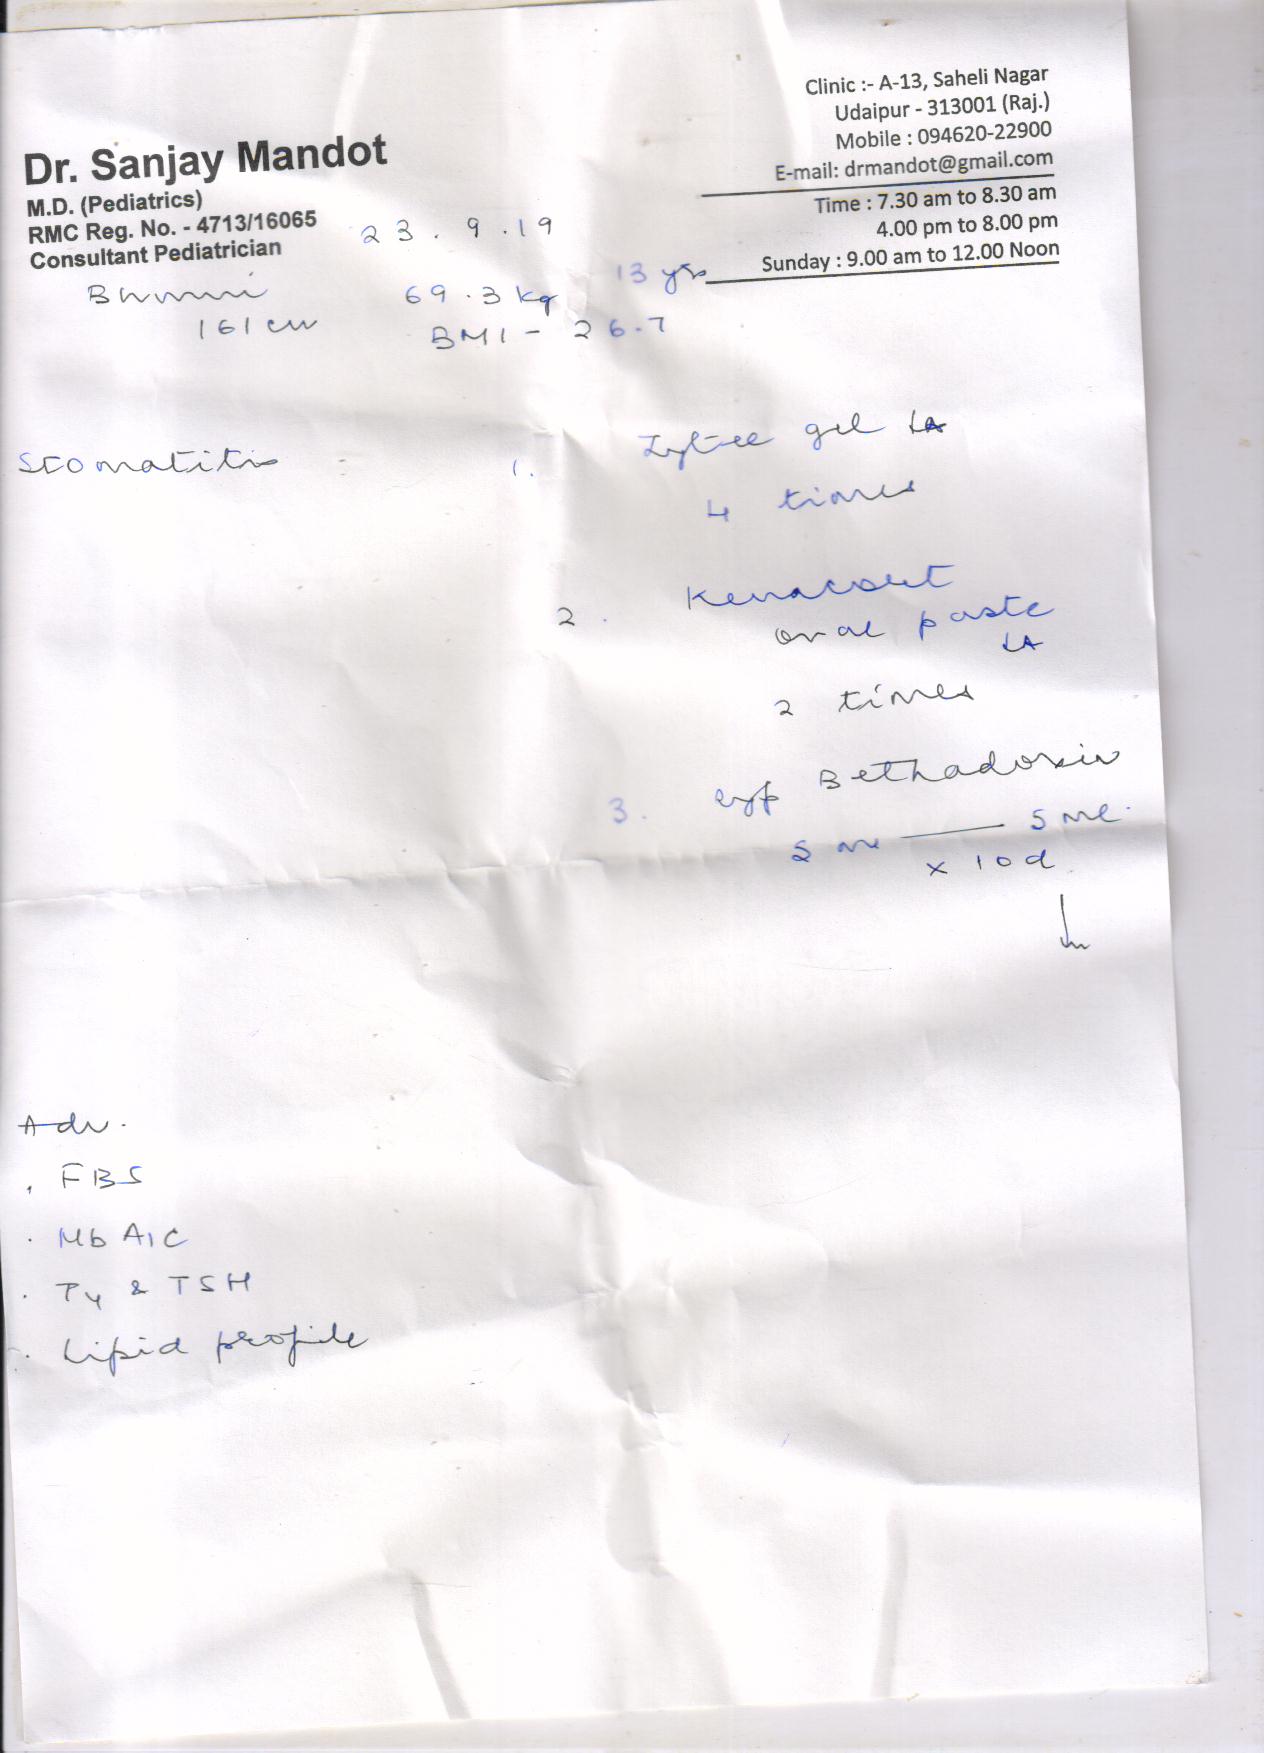 Dr. Sanjay Mandot
M.D. (Pediatrics)
RMC Reg. No. - 4713/16065
Consultant Pediatrician
Clinic :- A-13, Saheli Nagar
Udaipur - 313001 (Raj.)
Mobile : 094620-22900
E-mail: drmandot@gmail.com
Time : 7.30 am to 8.30 am
4.00 pm to 8.00 pm
Sunday : 9.00 am to 12.00 Noon
23.9.19
69.3 kg 13 yrs
161 cm BMI - 26.7
Stomatitis
1. Zytee gel LA
4 times
2. Kenacort
oral paste
LA
2 times
3. syp Bethadoxin
5 ml — 5 ml.
x 10 d
Adv.
. FBS
. Hb A1C
. T4 & TSH
. Lipid profile